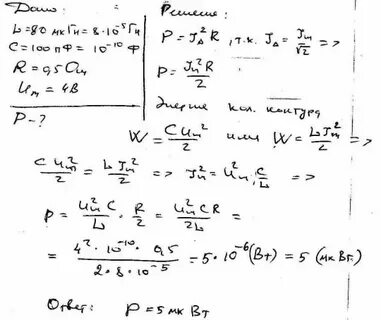 Дано:
L=80 мкГн=8·10⁻⁵Гн
C=100пФ=10⁻¹⁰Ф
R=0,5Ом
Uₘ=4В
P-?
Решение:
P=J_д²R, т.к. J_д=Jₘ/√2 =>
P=Jₘ²R/2
Энергия кол. контура
W=CUₘ²/2 или W=LJₘ²/2 =>
CUₘ²/2=LJₘ²/2 => Jₘ²=Uₘ²·C/L =>
P=Uₘ²C/L·R/2=Uₘ²CR/2L=
=4²·10⁻¹⁰·0,5/2·8·10⁻⁵=5·10⁻⁶(Вт)=5(мкВт)
Ответ: P=5мкВт